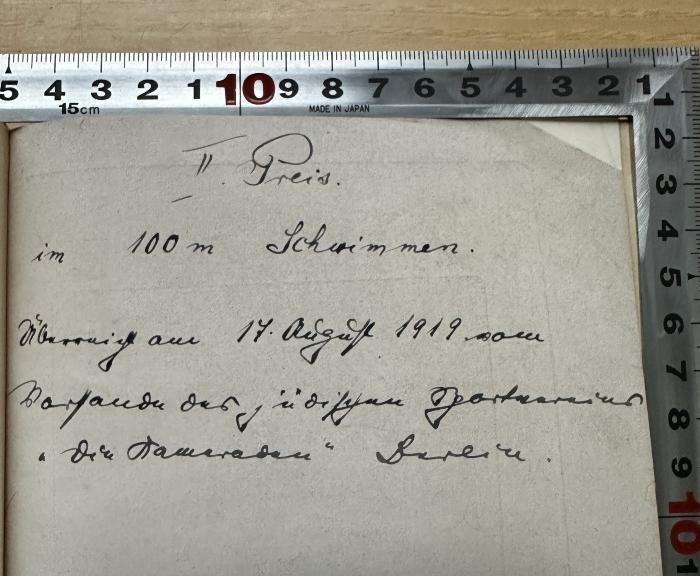 5 4 3 2 1 10 9 8 7 6 5 4 3 2 1
15cm MADE IN JAPAN
1
2
3
4
5
6
7
8
9
10
II. Preis.
im 100 m Schwimmen.
Überreicht am 17. August 1919 vom
Vorstande des jüdischen Sportvereins
„Die Kameraden“ Berlin.